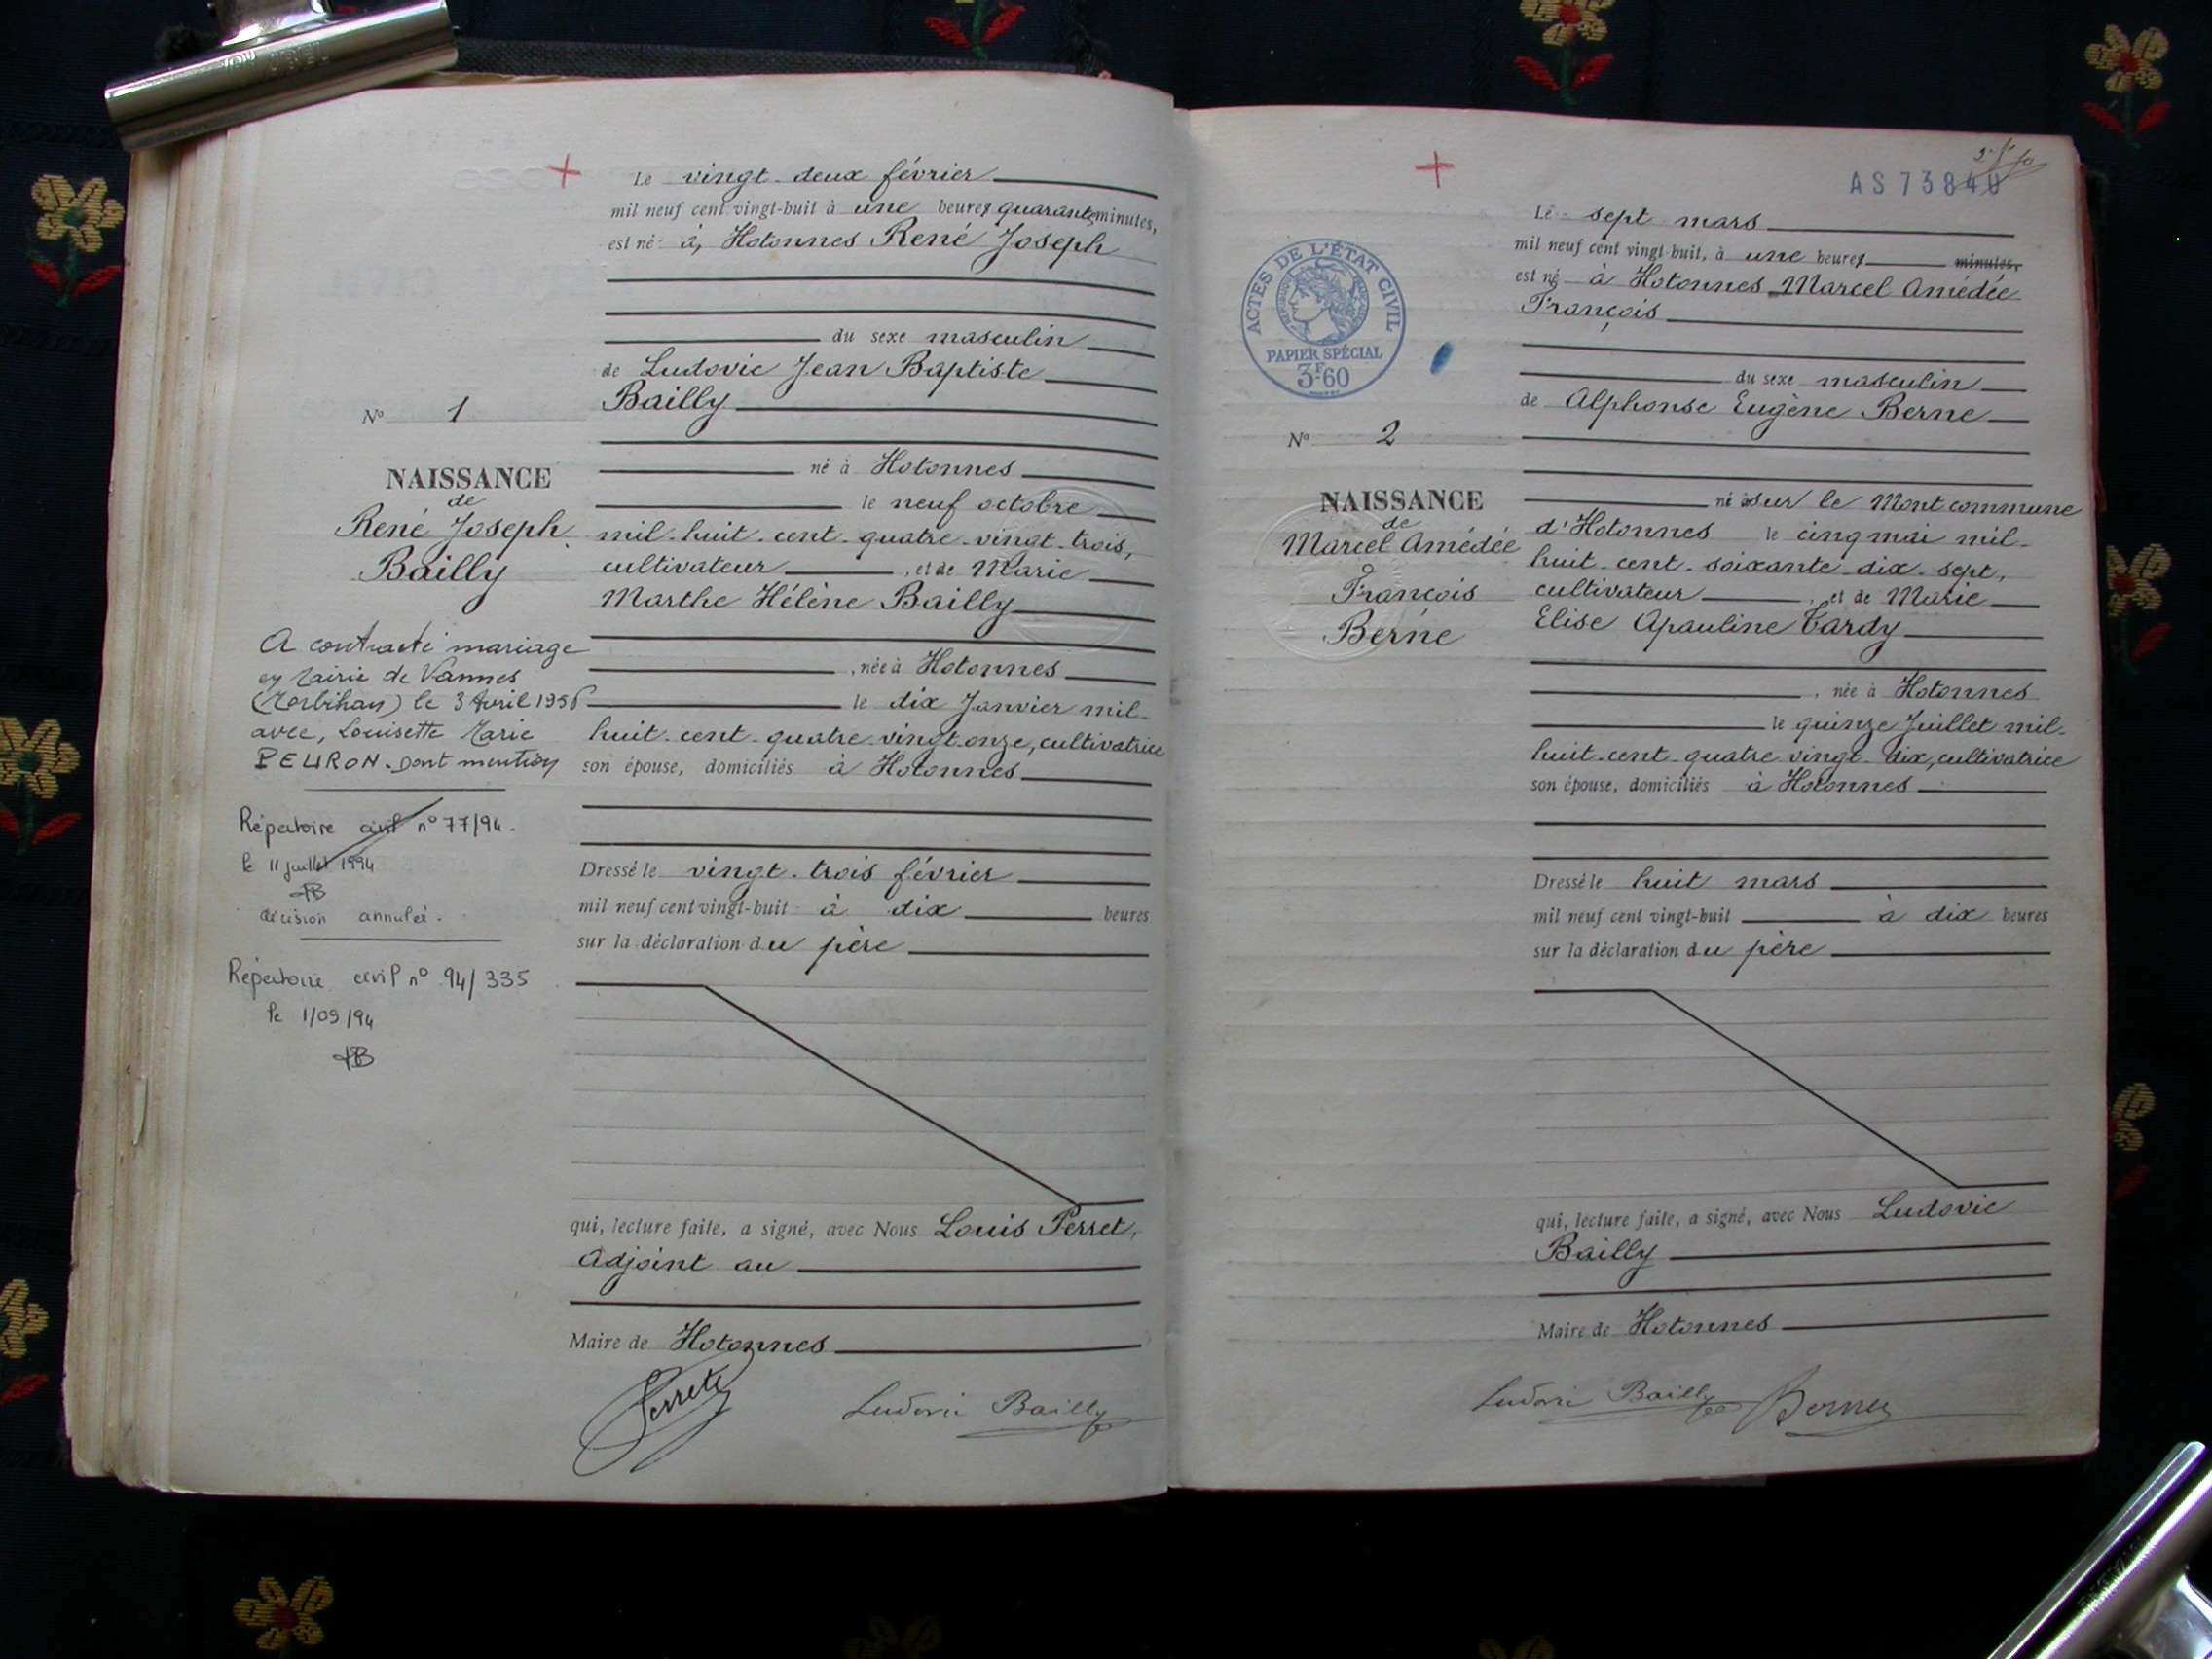 Le vingt-deux février
mil neuf cent vingt-huit à une heures quarante minutes,
est né à, Hotonnes René Joseph
du sexe masculin
de Ludovic Jean Baptiste
Bailly
né à Hotonnes
le neuf octobre
mil-huit-cent-quatre-vingt-trois,
cultivateur, et de Marie
Marthe Hélène Bailly
, née à Hotonnes
le dix Janvier mil-
huit-cent-quatre-vingt-onze, cultivatrice
son épouse, domiciliés à Hotonnes
Dressé le vingt-trois février
mil neuf cent vingt-huit à dix heures
sur la déclaration du père
qui, lecture faite, a signé, avec Nous Louis Perret,
Adjoint au
Maire de Hotonnes
Perret
Ludovic Bailly
N° 1
NAISSANCE
de
René Joseph
Bailly
A contracté mariage
en Mairie de Vannes
(Morbihan) le 3 Avril 1956
avec, Louisette Marie
PEURON. Dont mention
Répertoire civil n° 77/94.
le 11 juillet 1994
décision annulée.
Répertoire civil n° 94/335
le 1/09/94
AS 73840
ACTES DE L'ÉTAT CIVIL
PAPIER SPÉCIAL
3F.60
Le sept mars
mil neuf cent vingt-huit, à une heures minutes,
est né à Hotonnes Marcel Amédée
François
du sexe masculin
de Alphonse Eugène Berne
né à sur le Mont commune
d'Hotonnes le cinq mai mil-
huit-cent-soixante-dix-sept,
cultivateur, et de Marie
Elise Apauline Tardy
, née à Hotonnes
le quinze Juillet mil-
huit-cent-quatre-vingt-dix, cultivatrice
son épouse, domiciliés à Hotonnes
Dressé le huit mars
mil neuf cent vingt-huit à dix heures
sur la déclaration du père
qui, lecture faite, a signé, avec Nous Ludovic
Bailly
Maire de Hotonnes
Ludovic Bailly Berne
N° 2
NAISSANCE
de
Marcel Amédée
François
Berne